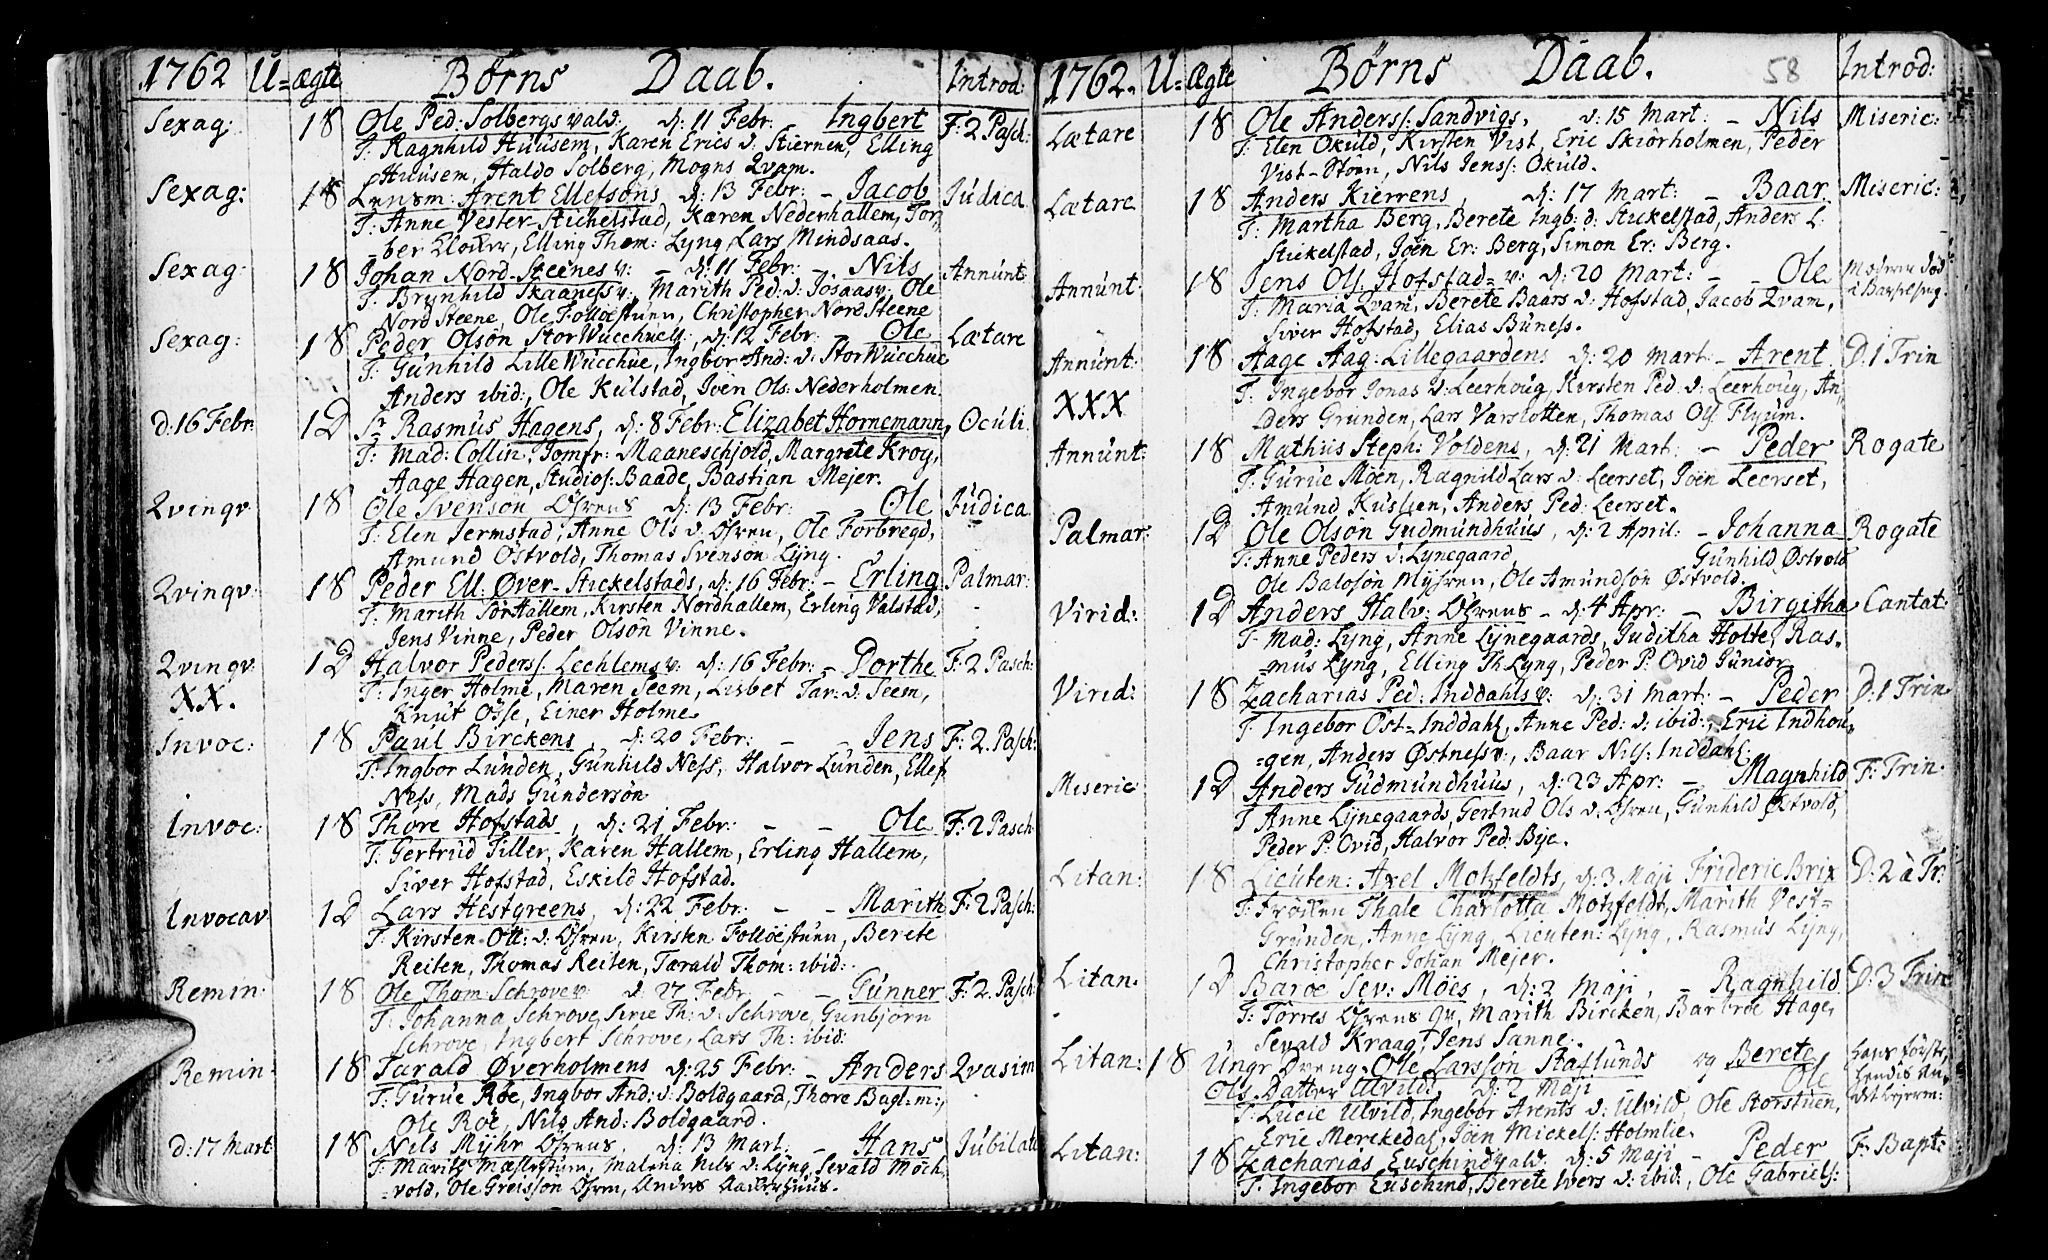 1762 U= ægte Børns Daab. Introd:
Sexag: 18 Ole Ped: Solbergsvald: d: 11 Febr: Ingbert F: 2 Pasch:
T: Ragnhild Huusem, Karen Erics d: Stiernen, Elling
Huusem, Haldo Solberg, Mogns Qvam.
Sexag: 18 Lensm: Arent Ellefsøns d: 13 Febr: – Jacob Judica
T: Anne Vester-Stichelstad, Karen Nederhallem, Tor-
ber Elocker, Elling Thom: Lyng, Lars Mindsaas.
Sexag: 18 Johan Nord-Steenes v: – d: 11 Febr: – Nils Annunt
T: Brynhild Skaaness v: Marith Ped: d: Josaas v: Ole
Nord Steene, Ole Folloestuen, Christopher Nord Steene
Sexag: 18 Peder Olsøn Stor Wucchuels, d: 12 Febr: Ole Lætare
T: Gunhild Lille Wucchue, Ingbor And: d: Stor Wucchue
Anders ibid:, Ole Kulstad, Joen Ols: Nederholmen.
d: 16 Febr 1D Sr Rasmus Hagens, d: 8 Febr: Elizabet Hornemann, Oculi
T: Mad: Collin, Jomfr: Maaneschjold, Margrete Kroy,
Aage Hagen, Studios: Baade, Bastian Mejer.
Qvinqv: 18 Ole Svensøn Øfrens d: 13 Febr: – Ole Judica
T: Elen Jermstad, Anne Ols d: Øfren, Ole Forbregd,
Amund Østvold, Thomas Svensøn Lyng.
Qvinqv: 18 Peder Ell: Øver-Stickelstads, d: 16 Febr: – Erling Palmar:
T: Marith SørHallem, Kirsten Nordhallem, Erling Valstad,
Jens Vinne, Peder Olsøn Vinne.
Qvinqv 1D Halvor Peders: Lechlems v: d: 16 Febr: – Dorthe F: 2 Pasch:
XX. T: Inger Holme, Maren Seem, Lisbet Tar: d: Seem,
Knut Osse, Einer Holme
Invoc: 18 Paul Birckens, d: 20 Febr: – – Jens F: 2. Pasch:
T: Ingbor Lunden, Gunhild Ness, Halvor Lunden, Ellef
Ness, Mads Gundersøn
Invoc: 18 Thore Hofstads, d: 21 Febr: – – Ole F: 2 Pasch
T: Gertrud Tiller, Karen Hallem, Erling Hallem,
Siver Hofstad, Eskild Hofstad.
Invocav 1D Lars Hestgreens, d: 22 Febr: – – Marith F: 2 Pasch:
T: Kirsten Ott: d: Øfren, Kirsten Folloestuen, Berete
Reiten, Thomas Reiten, Tarald Thom: ibid:
Remin: 18 Ole Thom: Schrove v: d: 27 Febr: – – Gunner F: 2. Pasch
T: Johanna Schrove, Sirie Th: d: Schrove, Gunbjørn
Schrove, Ingbert Schrove, Lars Th: ibid:
Remin: 18 Tarald Øverholmens d: 25 Febr: – Anders Qvasim
T: Gurue Røe, Ingbor And: d: Boldgaard, Thore Bagl:m:,
Ole Røe, Nils And: Boldgaard.
d: 17 Mart 18 Nils Myhr Øfrens, d: 13 Mart: – Hans Jubilate
T: Marite, Malena Nils d: Lyng, Sevald Moch-
vold, Ole Greisson Øfren, Anders
1762. U= ægte Børns Daab. 58 Introd:
Lætare 18 Ole Anders: Sandvigs, d: 15 Mart: – Nils Miseric:
T: Elen Okuld, Kirsten Vist, Eric Skiørholmen, Peder
Vist-Støen, Nils Jens: Okuld.
Lætare 18 Anders Kierrens, d: 17 Mart: – Baar Miseric:
T: Martha Berg, Berete Ingb: d: Stickelstad, Anders L:
Stickelstad, Joen Er: Berg, Simon Er: Berg.
Annunt: 18 Jens Ols: Hofstad= v: d: 20 Mart: – – Ole Moderen død
i Barselseng.
T: Maria Qvam, Berete Baars d: Hofstad, Jacob Qvam,
Siver Hofstad, Elias Buness.
Annunt: 18 Aage Aag: Lillegaardens d: 20 Mart: – Arent D: 1 Trin
XXX T: Ingebor Jonas d: Leerhoug, Kirsten Ped: d: Leerhoug, An-
ders Grunden, Lars Varslotten, Thomas Ols: Flyum.
Annunt: 18 Mathus Steph: Voldens, d: 21 Mart: – Peder Rogate
T: Gurue Moen, Ragnild Lars d: Leerset, Joen Leerset,
Amund Kuslien, Anders Ped: Leerset.
Palmar: 1D Ole Olson Gudmundhuus, d: 2 April: – Johanna Rogate
T: Anne Peders d: Lynegaard Gunhild Østvold
Ole Balosøn Myhren, Ole Amundsøn Østvold.
Virid: 1D Anders Halv: Øfrens – d: 4 Apr: – Birgitha Cantat:
T: Mad: Lyng, Anne Lynegaards, Juditha Holte, Ras-
=mus Lyng, Elling Th: Lyng, Peder P: Ovid Junior
Virid: 18 Zacharias Ped: Inddahls v: d: 31 Mart: – Peder D: 1 Trin
T: Ingebor Øst=Inddahl, Anne Ped: d: ibid:, Eric Indhou-
=gen, Anders Østness v:, Baar Nils: Inddahl
Miseric 1D Anders Gudmundhuus, d: 23 Apr: – Magnhild F: Trin.
T Anne Lynegaards, Gertrud Ols d: Øfren, Gunhild Østvold,
Peder P: Ovid, Halvor Ped: Bye.
Litan: 18 Lieuten: Axel Motzfeldts, d: 3 Maji Frideric Brix D: 2 à Tr:
T: Frøiken Thale Charlotta Motzfeldt, Marith Vest=
Grunden, Anne Lyng, Lieuten: Lyng, Rasmus Lyng,
Christopher Johan Mejer.
Litan: 1D Baroe Sev: Møes, d: 2 Maji, – Ragnhild D: 3 Trin
T: Torres Øfrens qv, Marith Bircken, Barbroe Hage,
Sevald Kraag, Jens Sanne.
Litan: 18 Ungr Dreng Ole Larssøn Staflunds og Berete Hans første,
Ols Datter Ulvild: d: 2 Maji Ole hendes An-
det Lejerm:
T: Lucie Ulvild, Ingebor Arents d: Ulvild, Ole Storstuen,
Eric Merckedal, Joen Mickels: Holmlie.
Litan: 18 Zacharias Euschindvald: d: 5 Maji – Peder F: Bapt:
T: Ingebor Euschind, Berete Ivers d: ibid:, Ole Gabriels: